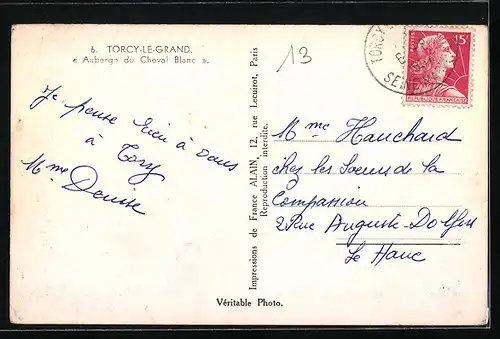 6. TORCY-LE-GRAND.
« Auberge du Cheval Blanc ».
Je pense bien à vous
à Torcy
Mme Denise
Impressions de France ALAIN, 12, rue Lecuirot, Paris
Reproduction interdite.
13
TORCY
SEINE
POSTES
15F
REPUBLIQUE FRANÇAISE
Mme Hauchard
chez les Soeurs de la
Compassion
2 Rue Auguste-Dolfus
Le Havre
Véritable Photo.